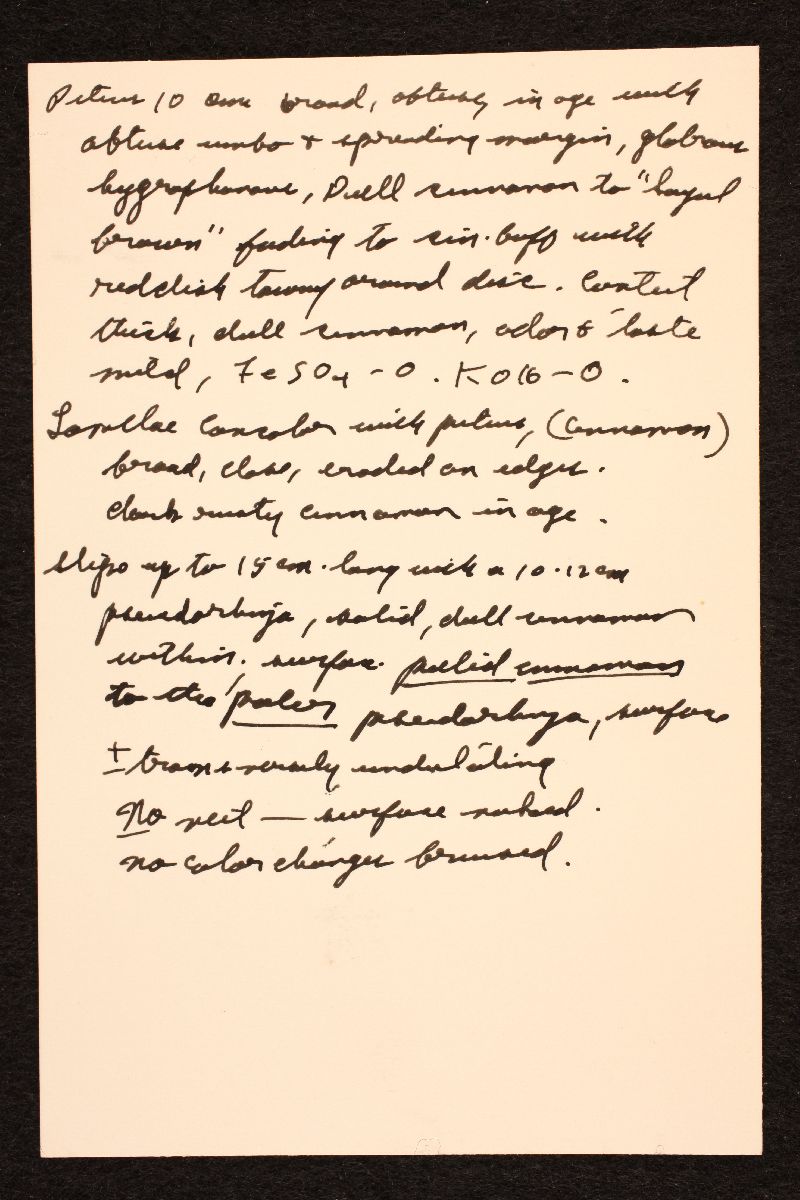 Pileus 10 cm broad, obtuse, in age with
obtuse umbo + spreading margin, glabrous
hygrophanous, Dull cinnamon to "hazel
brown" fading to cin. buff with
reddish tawny around disc. Context
thick, dull cinnamon, odor & taste
mild, FeSO4 - O. KOH - O.
Lamellae Concolor with pileus, (cinnamon)
broad, close, eroded on edges.
dark rusty cinnamon in age.
Stipe up to 15 cm. long with a 10-12 cm
pseudorhiza, solid, dull cinnamon
within. surface pallid cinnamon
to the paler pseudorhiza, surface
± transversely undulating
No veil — surface naked.
no color changes bruised.